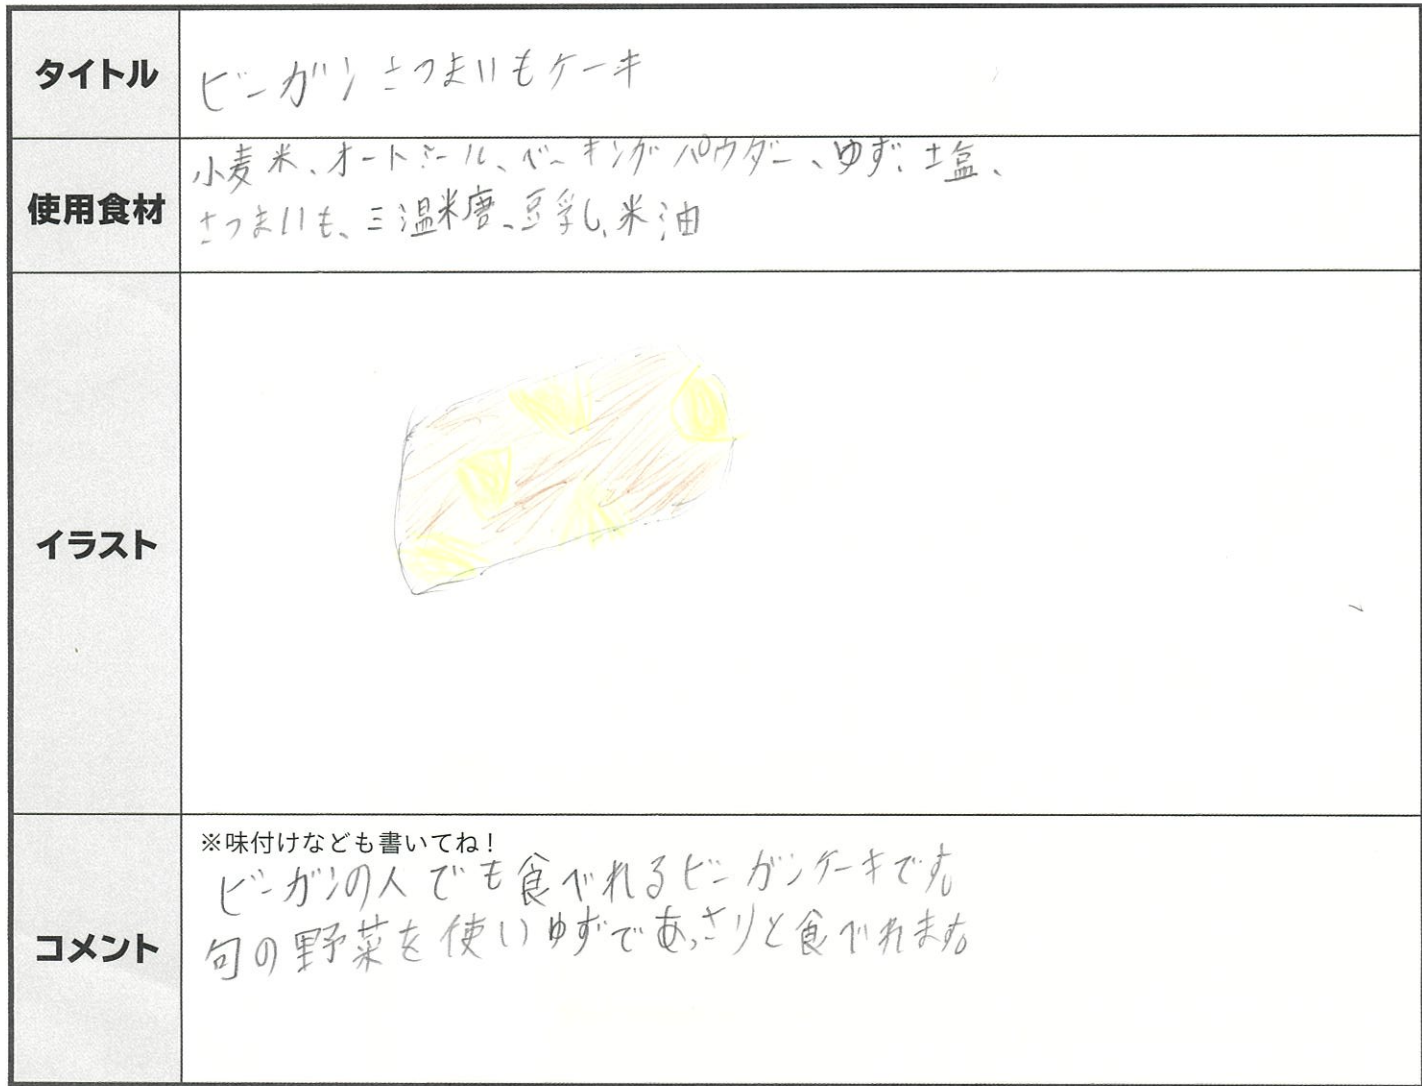 タイトル
ビーガンさつまいもケーキ
使用食材
小麦米、オートミール、ベーキングパウダー、ゆず、塩、
さつまいも、三温糖、豆乳、米油
イラスト
コメント
※味付けなども書いてね！
ビーガンの人でも食べれるビーガンケーキです。
旬の野菜を使いゆずであっさりと食べれます。